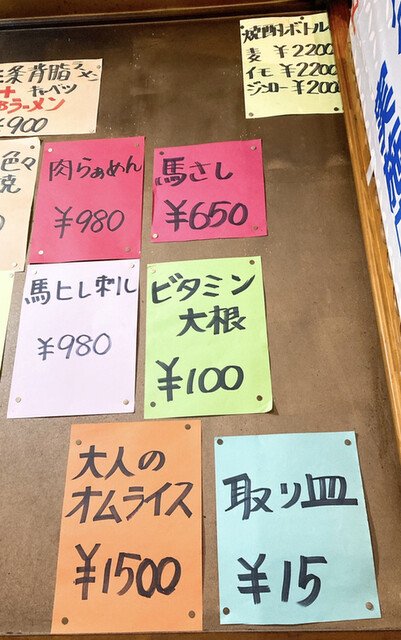 焼酎ボトル
麦 ¥2200
イモ ¥2200
ジンロー ¥200
条背脂ラーメン
キャベツ
ラーメン
¥900
色々
焼
肉らぁめん
¥980
馬さし
¥650
馬ヒレ刺し
¥980
ビタミン
大根
¥100
大人の
オムライス
¥1500
取り皿
¥15